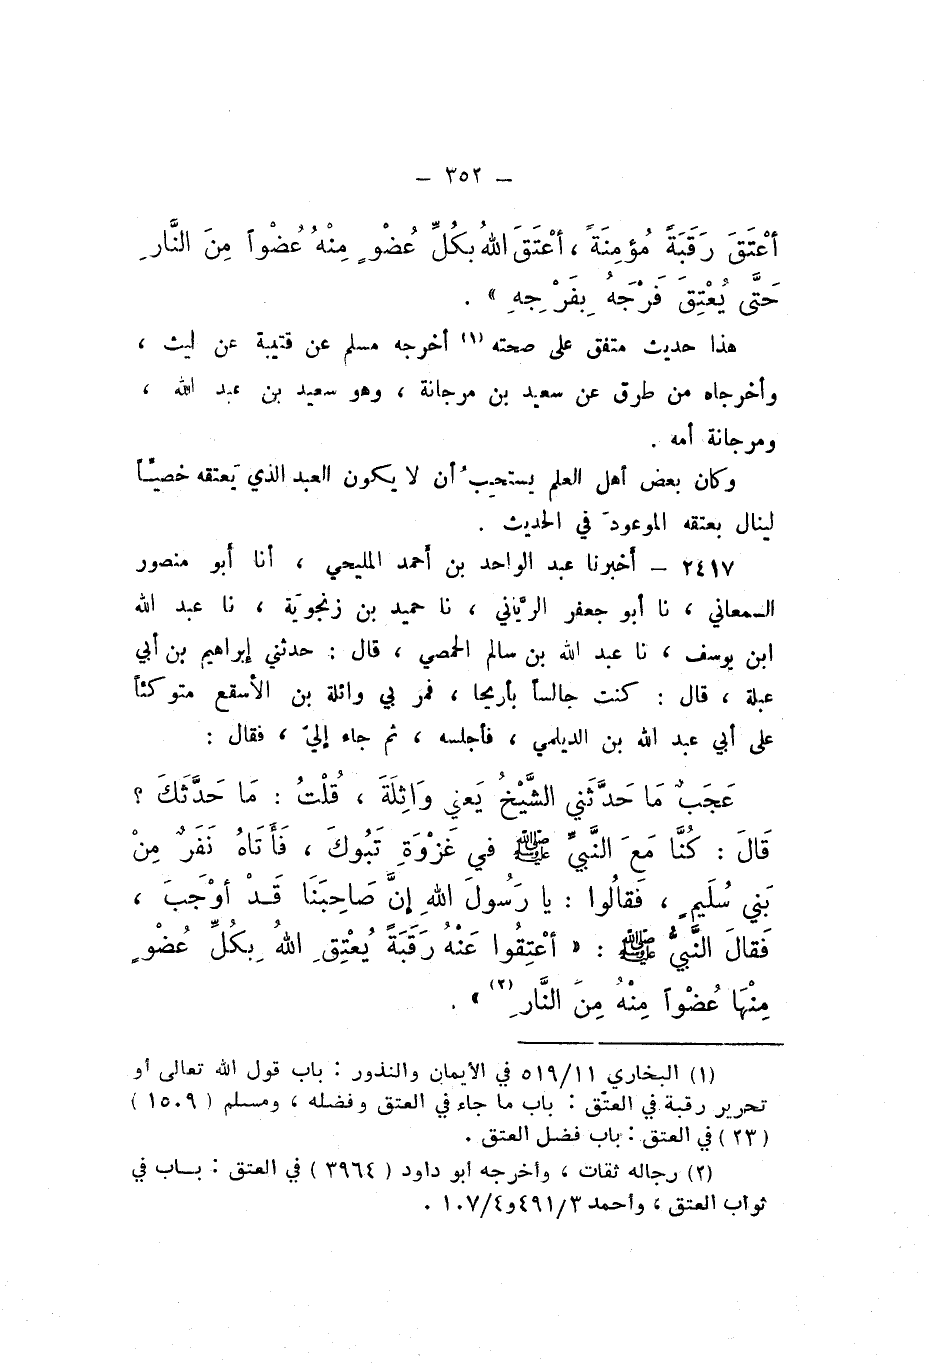 – ٣٥٢ –
أَعْتَقَ رَقَبَةً مُؤمِنَةً ، أَعْتَقَ اللهُ بِكُلِّ عُضْوٍ مِنْهُ عُضْواً مِنَ النَّارِ
حَتَّى يُعْتِقَ فَرْجَهُ بِفَرْجِهِ » .
هذا حديث متفق على صحته (١) أخرجه مسلم عن قتيبة عن ليث ،
وأخرجاه من طرق عن سعيد بن مرجانة ، وهو سعيد بن عبد الله ،
ومرجانة أمه .
وكان بعض أهل العلم يستحبُ أن لا يكون العبد الذي يَعتقه خصيّاً
لينال بعتقه الموعودَ في الحديث .
٢٤١٧ – أخبرنا عبد الواحد بن أحمد المليحي ، أنا أبو منصور
السمعاني ، نا أبو جعفر الريَّاني ، نا حميد بن زنجويَة ، نا عبد الله
ابن يوسف ، نا عبد الله بن سالم الحمصي ، قال : حدثني إبراهيم بن أبي
عبلة ، قال : كنت جالساً بأريحا ، فمر بي واثلة بن الأسقع متوكئاً
على أبي عبد الله بن الديلمي ، فأجلسه ، ثم جاء إليّ ، فقال :
عَجَبٌ مَا حَدَّثَني الشَّيْخُ يَعني وَاثِلَةَ ، قُلْتُ : مَا حَدَّثَكَ ؟
قَالَ : كُنَّا مَعَ النَّبيِّ ﷺ في غَزْوَةِ تَبُوكَ ، فَأَتَاهُ نَفَرٌ مِنْ
بَني سُلَيمٍ ، فَقالُوا : يا رَسُولَ اللهِ إنَّ صَاحِبَنَا قَدْ أوْجَبَ ،
فَقالَ النَّبيُّ ﷺ : « أعْتِقُوا عَنْهُ رَقَبَةً يُعْتِقِ اللهُ بِكُلِّ عُضْوٍ
مِنْهَا عُضْواً مِنْهُ مِنَ النَّارِ (٢) » .
(١) البخاري ٥١٩/١١ في الأيمان والنذور : باب قول الله تعالى أو
تحرير رقبة في العتق : باب ما جاء في العتق وفضله ، ومسلم ( ١٥٠٩ )
( ٢٣ ) في العتق : باب فضل العتق .
(٢) رجاله ثقات ، وأخرجه أبو داود ( ٣٩٦٤ ) في العتق : باب في
ثواب العتق ، وأحمد ٤٩١/٣ و١٠٧/٤ .